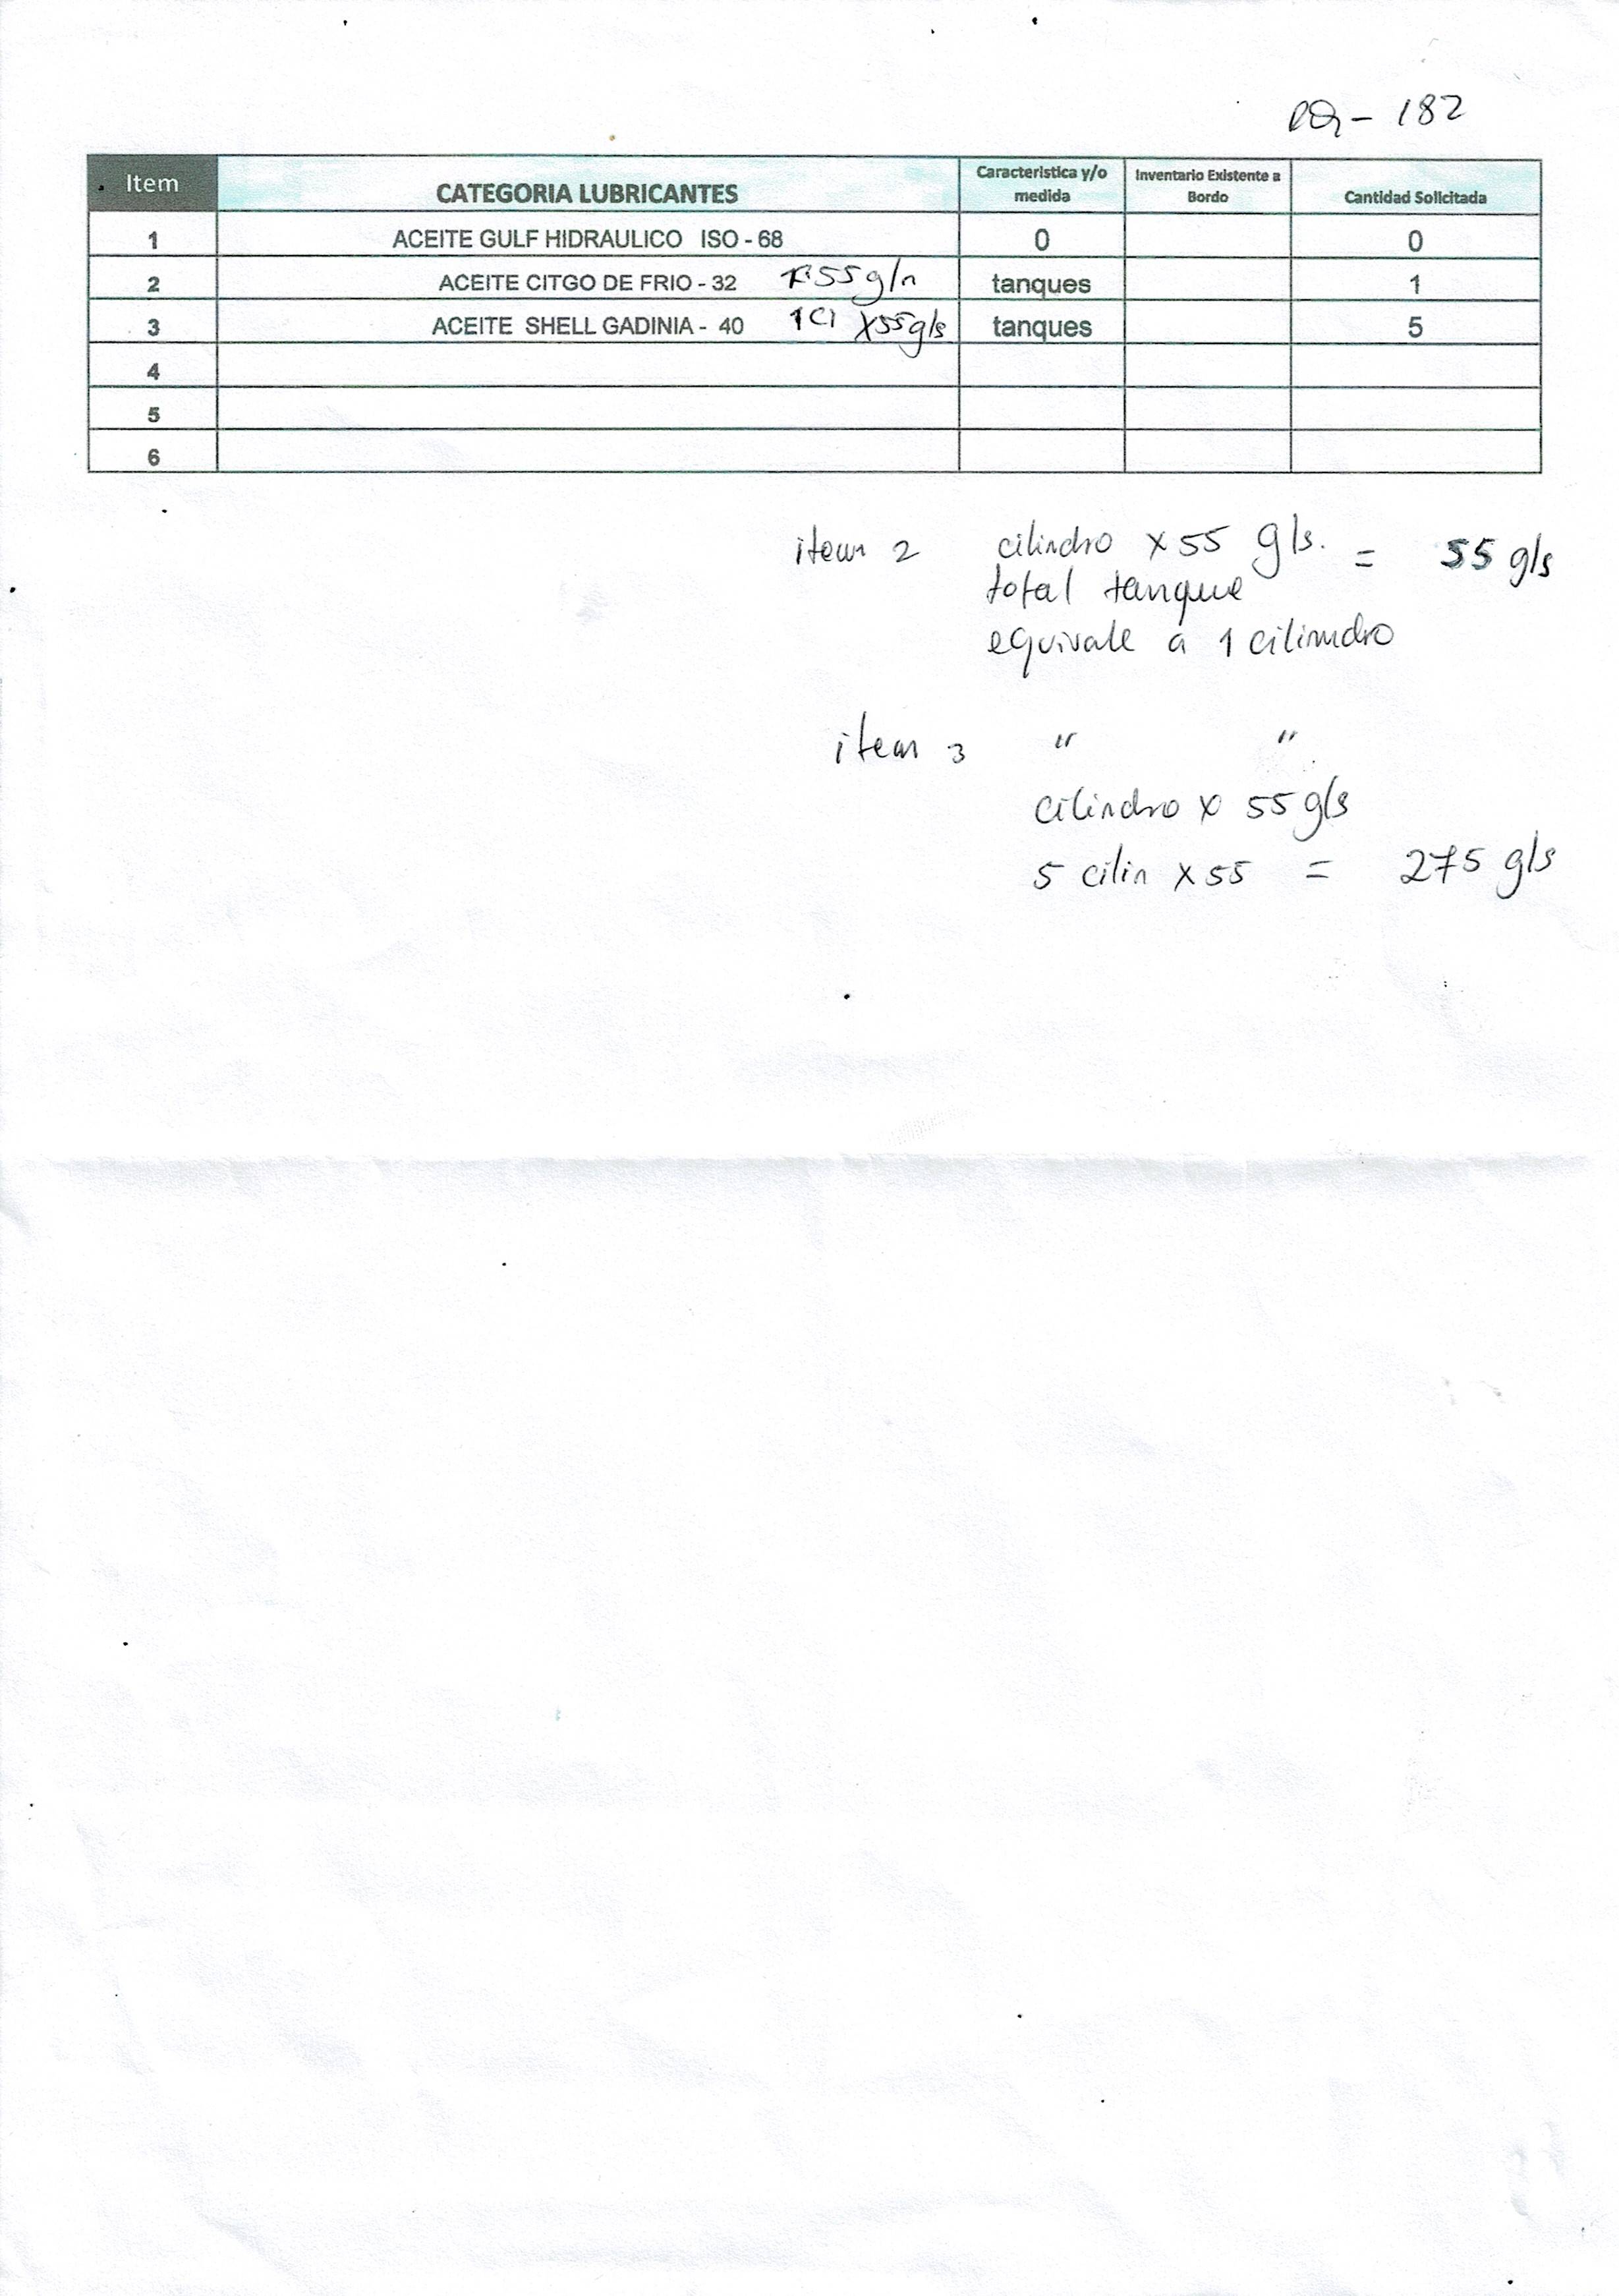 - 182
Item CATEGORIA LUBRICANTES Caracteristica y/o medida Inventario Existente a Bordo Cantidad Solicitada
1 ACEITE GULF HIDRAULICO ISO - 68 0 0
2 ACEITE CITGO DE FRIO - 32 x 55 gln tanques 1
3 ACEITE SHELL GADINIA - 40 1 Cl x55 gls tanques 5
4
5
6
item 2 cilindro x 55 gls. = 55 gls
total tanque
equivale a 1 cilindro
item 3 " "
cilindro x 55 gls
5 cilin x 55 = 275 gls